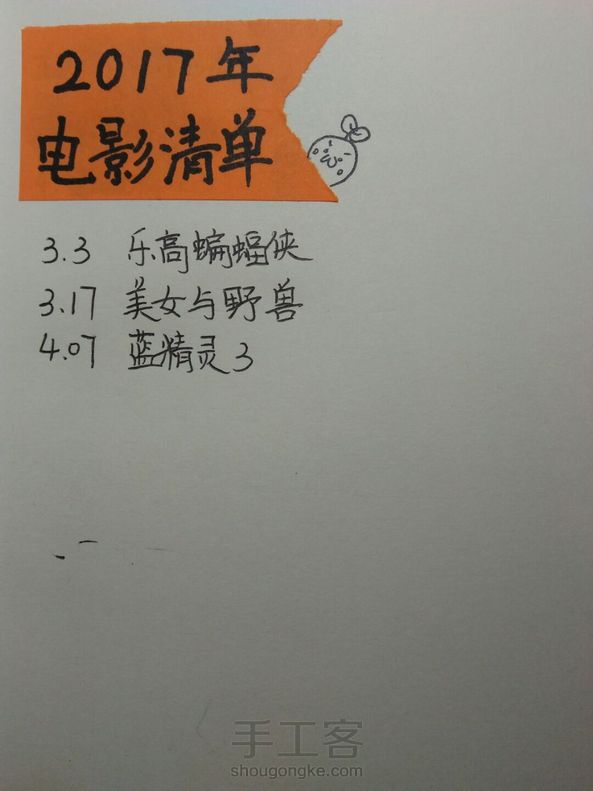 2017年
电影清单
3.3 乐高蝙蝠侠
3.17 美女与野兽
4.07 蓝精灵3
手工客
shougongke.com